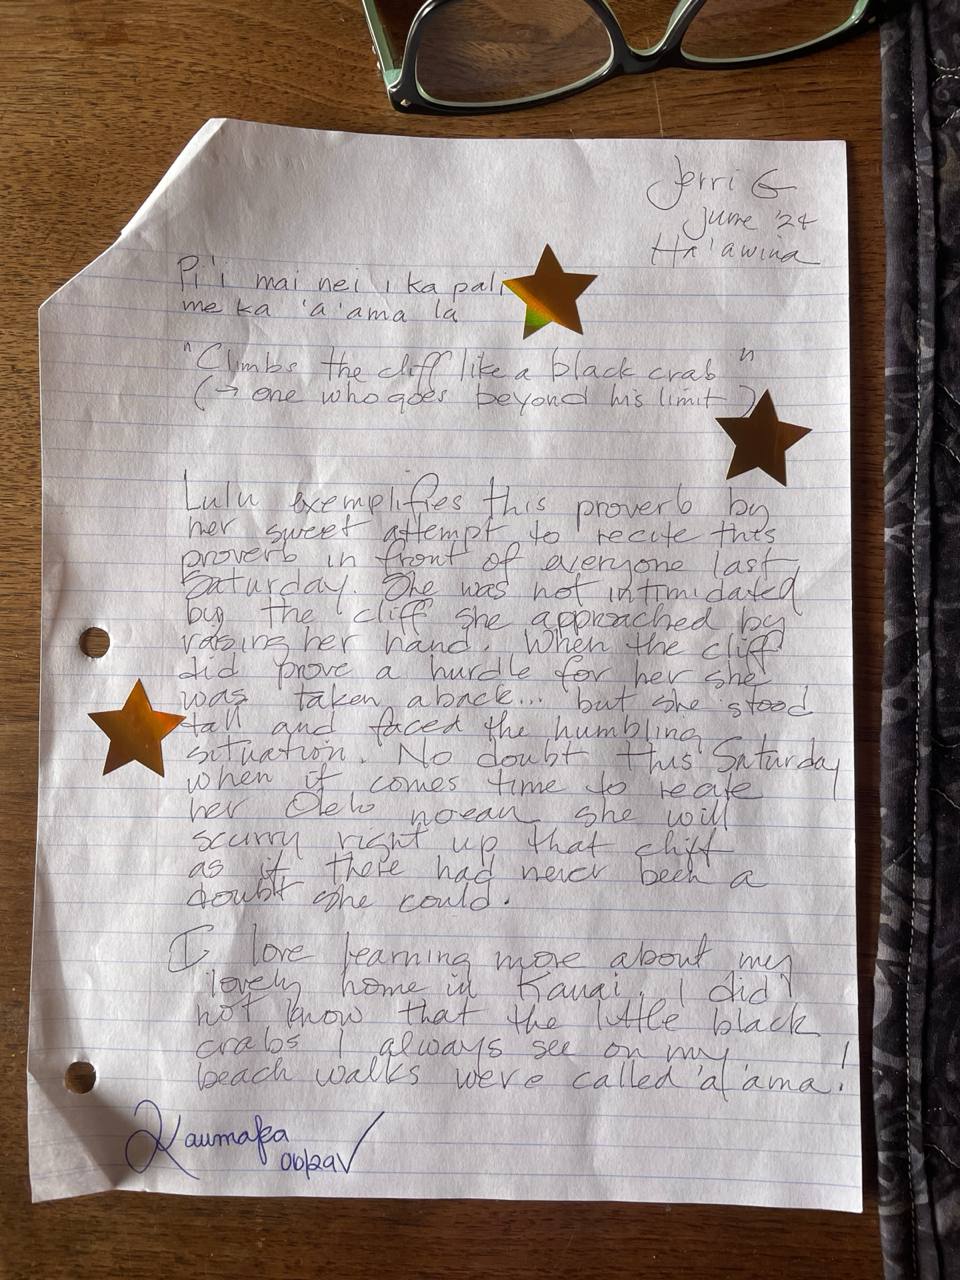 Jerri G
June '24
Ha'awina
Pi'i mai nei i ka pali
me ka 'a'ama la
"Climbs the cliff like a black crab"
(→ one who goes beyond his limit)
Lulu exemplifies this proverb by
her sweet attempt to recite this
proverb in front of everyone last
Saturday. She was not intimidated
by the cliff she approached by
rasing her hand. When the cliff
did prove a hurdle for her she
was taken aback... but she stood
tall and faced the humbling
situation. No doubt this Saturday
when it comes time to
her Olelo noeau she will
scurry right up that cliff
as if there had never been a
doubt she could.
I love learning more about my
lovely home in Kauai. I did
not know that the little black
crabs I always see on my
beach walks were called 'a'ama!
Kaumaka
06/29